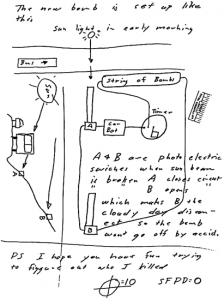 The new bomb is set up like
this
sun light in early morning
Bus →
Sun
String of Bombs
A
Car
Bat
Timer
A
B
B
A & B are photo electric
swiches when sun beam
is broken A closes circut
B opens
which makes B the
cloudy day discon-
ect so the bomb
wont go off by accid.
PS I hope you have fun trying
to figgure out who I killed
=10 SFPD=0